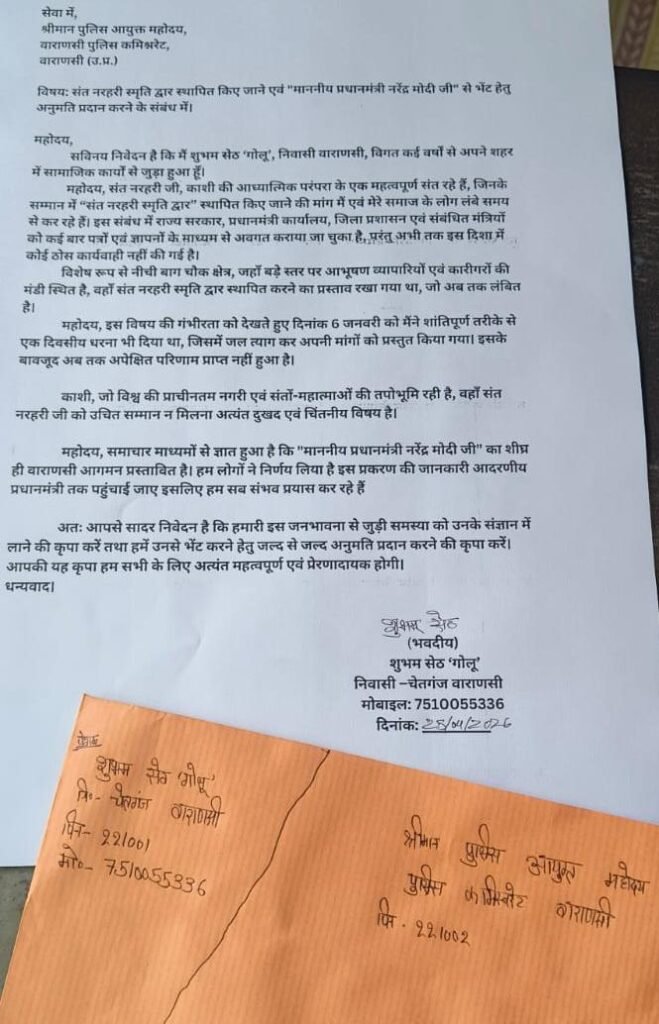 सेवा में,
श्रीमान पुलिस आयुक्त महोदय,
वाराणसी पुलिस कमिश्नरेट,
वाराणसी (उ.प्र.)
विषय: संत नरहरी स्मृति द्वार स्थापित किए जाने एवं "माननीय प्रधानमंत्री नरेंद्र मोदी जी" से भेंट हेतु
अनुमति प्रदान करने के संबंध में।
महोदय,
सविनय निवेदन है कि मैं शुभम सेठ ‘गोलू’, निवासी वाराणसी, विगत कई वर्षों से अपने शहर
में सामाजिक कार्यों से जुड़ा हुआ हूँ।
महोदय, संत नरहरी जी, काशी की आध्यात्मिक परंपरा के एक महत्वपूर्ण संत रहे हैं, जिनके
सम्मान में “संत नरहरी स्मृति द्वार” स्थापित किए जाने की मांग मैं एवं मेरे समाज के लोग लंबे समय
से कर रहे हैं। इस संबंध में राज्य सरकार, प्रधानमंत्री कार्यालय, जिला प्रशासन एवं संबंधित मंत्रियों
को कई बार पत्रों एवं ज्ञापनों के माध्यम से अवगत कराया जा चुका है, परंतु अभी तक इस दिशा में
कोई ठोस कार्यवाही नहीं की गई है।
विशेष रूप से नीची बाग चौक क्षेत्र, जहाँ बड़े स्तर पर आभूषण व्यापारियों एवं कारीगरों की
मंडी स्थित है, वहाँ संत नरहरी स्मृति द्वार स्थापित करने का प्रस्ताव रखा गया था, जो अब तक लंबित
है।
महोदय, इस विषय की गंभीरता को देखते हुए दिनांक 6 जनवरी को मैंने शांतिपूर्ण तरीके से
एक दिवसीय धरना भी दिया था, जिसमें जल त्याग कर अपनी मांगों को प्रस्तुत किया गया। इसके
बावजूद अब तक अपेक्षित परिणाम प्राप्त नहीं हुआ है।
काशी, जो विश्व की प्राचीनतम नगरी एवं संतों-महात्माओं की तपोभूमि रही है, वहाँ संत
नरहरी जी को उचित सम्मान न मिलना अत्यंत दुखद एवं चिंतनीय विषय है।
महोदय, समाचार माध्यमों से ज्ञात हुआ है कि "माननीय प्रधानमंत्री नरेंद्र मोदी जी" का शीघ्र
ही वाराणसी आगमन प्रस्तावित है। हम लोगों ने निर्णय लिया है इस प्रकरण की जानकारी आदरणीय
प्रधानमंत्री तक पहुंचाई जाए इसलिए हम सब संभव प्रयास कर रहे हैं
अतः आपसे सादर निवेदन है कि हमारी इस जनभावना से जुड़ी समस्या को उनके संज्ञान में
लाने की कृपा करें तथा हमें उनसे भेंट करने हेतु जल्द से जल्द अनुमति प्रदान करने की कृपा करें।
आपकी यह कृपा हम सभी के लिए अत्यंत महत्वपूर्ण एवं प्रेरणादायक होगी।
धन्यवाद।
शुभम सेठ
(भवदीय)
शुभम सेठ ‘गोलू’
निवासी –चेतगंज वाराणसी
मोबाइल: 7510055336
दिनांक: 25/04/2026
प्रेषक
शुभम सेठ 'गोलू'
नि०- चेतगंज वाराणसी
पिन- 221001
मो०- 7510055336
श्रीमान पुलिस आयुक्त महोदय
पुलिस कमिश्नरेट वाराणसी
पिन - 221002